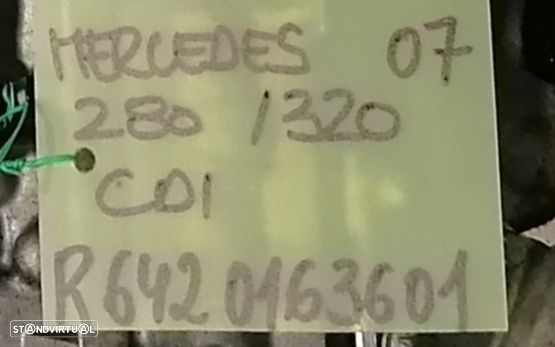 MERCEDES 07
280 /320
CDI
R6420163601
STANDVIRTUAL